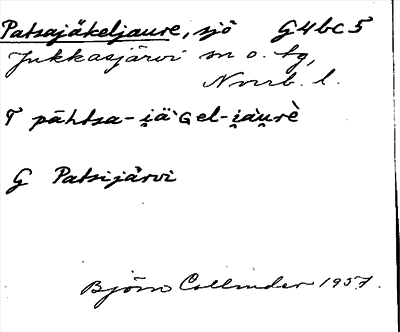 Patsajäkeljaure, sjö G4bc5
Jukkasjärvi sn o. tg,
Norrb. l.
T pāhtsa-i̯ä`ɢel-i̯àu̯rè
G Patsijärvi
Björn Collinder 1957.